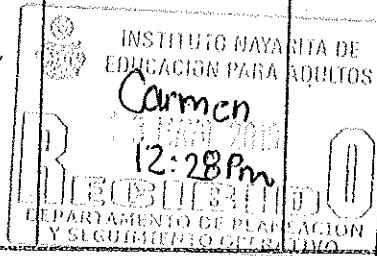 INSTITUTO NAYARITA DE
EDUCACION PARA ADULTOS
Carmen
12:28 Pm
RECIBIDO
DEPARTAMENTO DE PLANEACION
Y SEGUIMIENTO OPERATIVO